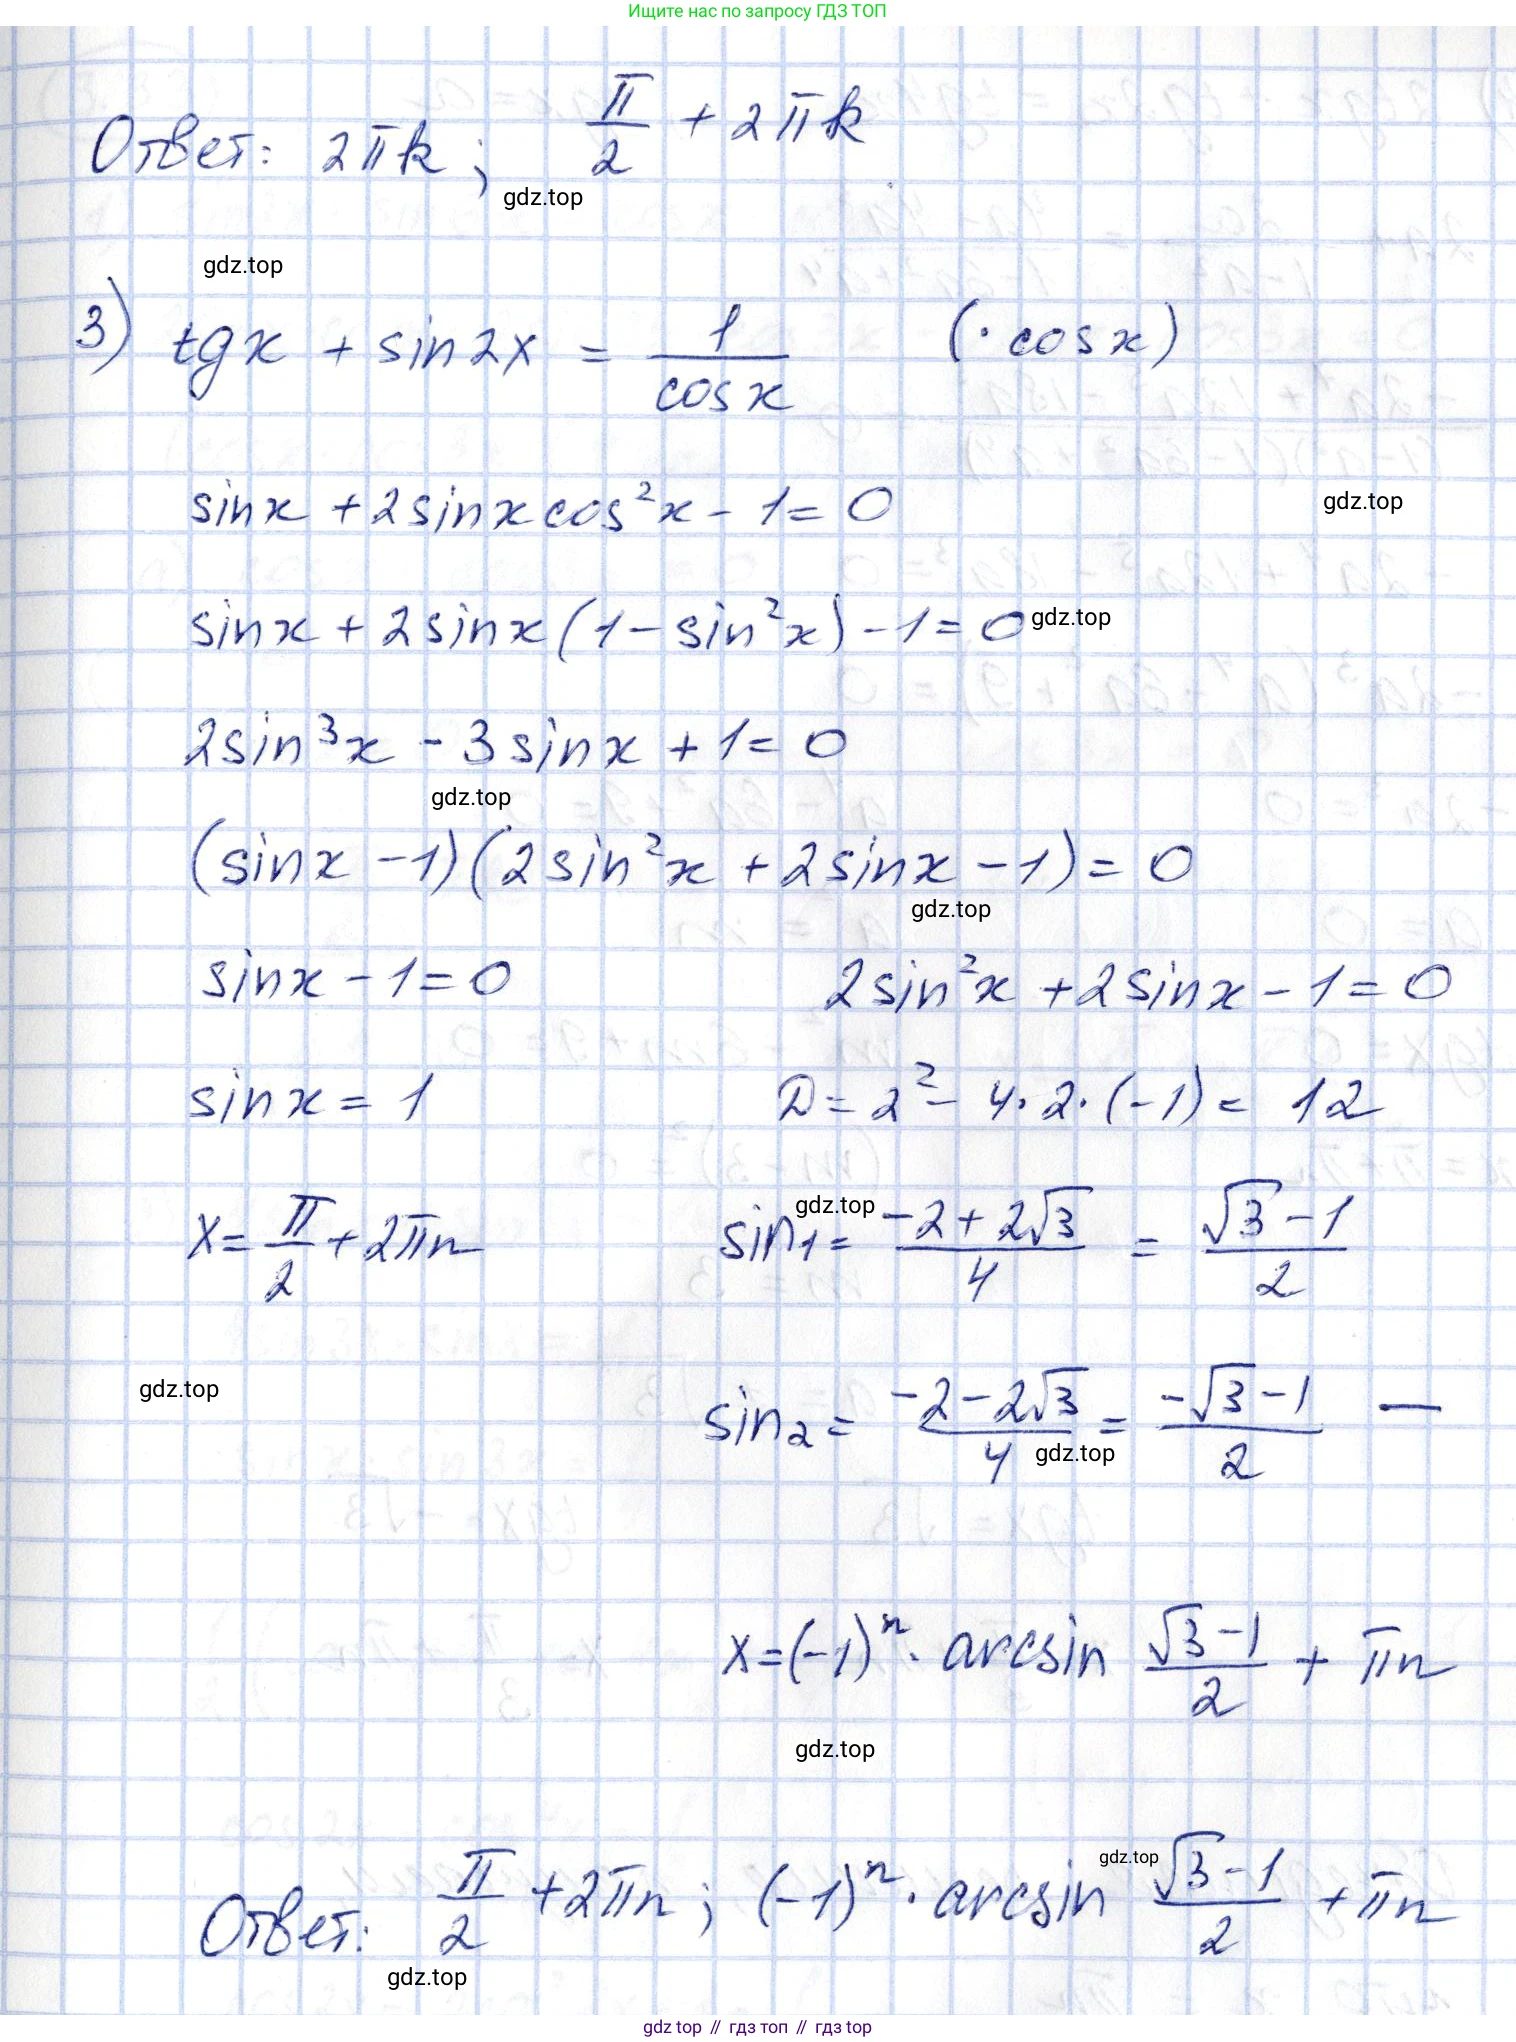 Ищите нас по запросу ГДЗ ТОП
Ответ: 2πk; π/2 + 2πk
gdz.top
gdz.top
3) tgx + sin2x = 1/cosx (· cosx)
sinx + 2sinxcos²x - 1 = 0
gdz.top
sinx + 2sinx(1 - sin²x) - 1 = 0
gdz.top
2sin³x - 3sinx + 1 = 0
gdz.top
(sinx - 1)(2sin²x + 2sinx - 1) = 0
gdz.top
sinx - 1 = 0 2sin²x + 2sinx - 1 = 0
sinx = 1 D = 2² - 4·2·(-1) = 12
gdz.top
x = π/2 + 2πn sin₁ = (-2 + 2√3)/4 = (√3 - 1)/2
gdz.top
sin₂ = (-2 - 2√3)/4 = (-√3 - 1)/2 —
gdz.top
x = (-1)ⁿ · arcsin (√3 - 1)/2 + πn
gdz.top
gdz.top
Ответ: π/2 + 2πn; (-1)ⁿ · arcsin (√3 - 1)/2 + πn
gdz.top
gdz top // гдз топ // гдз top